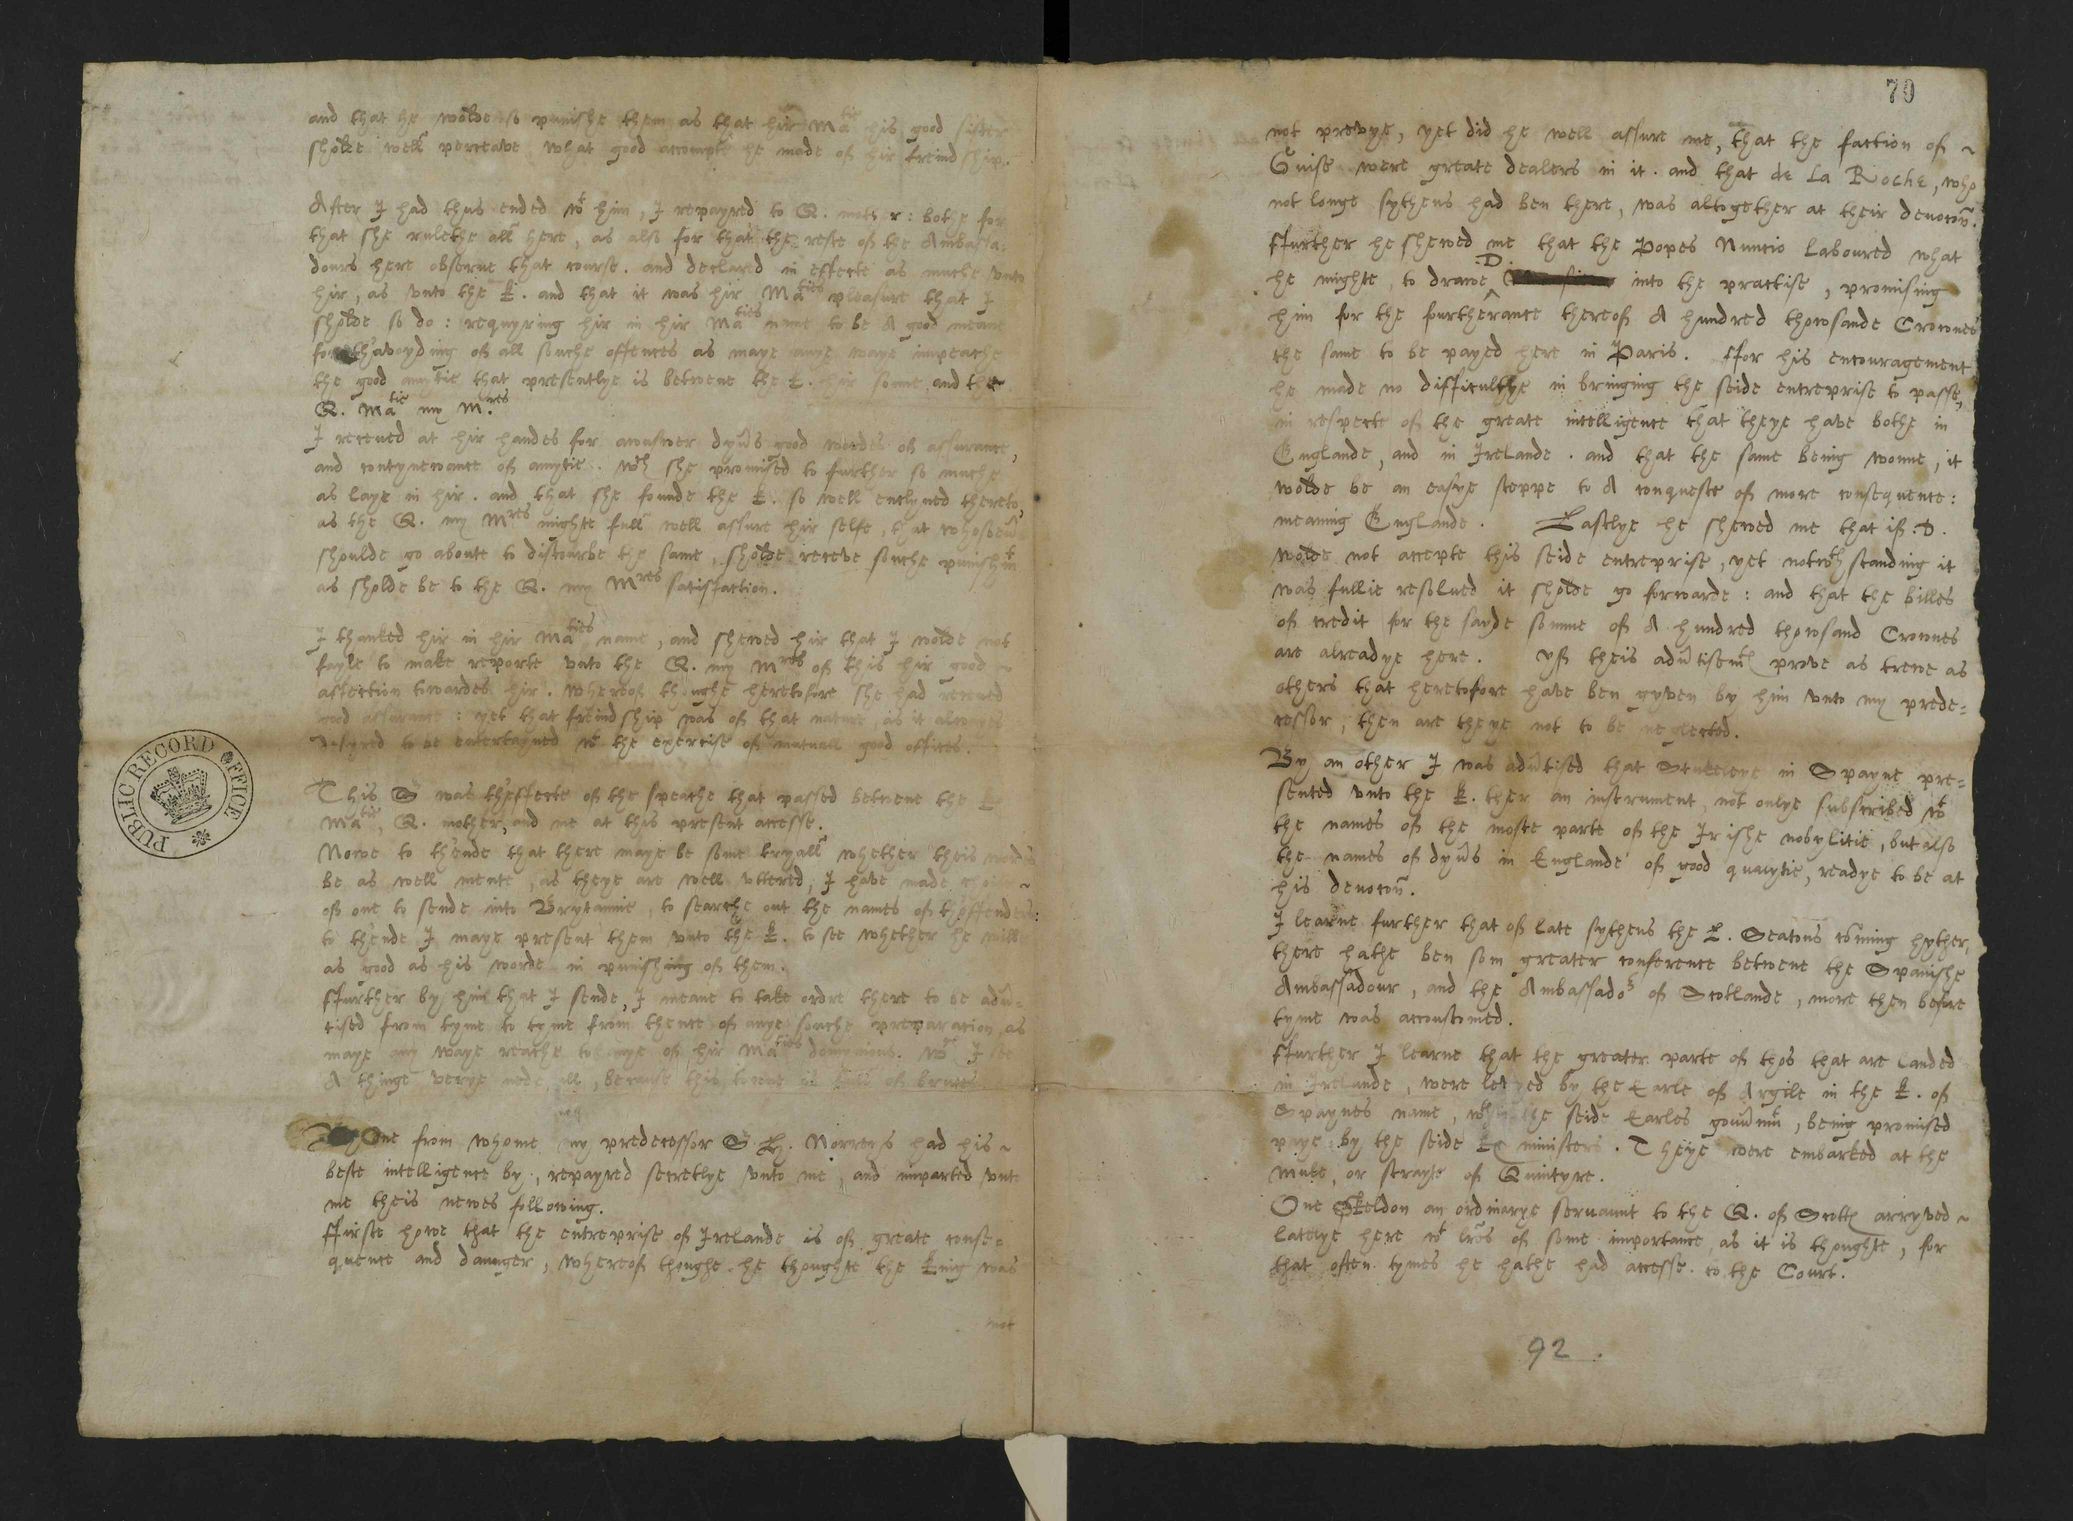 and that he wolde so punishe them as that hir Matie his good sister
sholde well perceave what good accompte he made of hir freindship.
After I had thus ended wt him, I repayred to Q. mother: bothe for
that she rulethe all here, as also for that the reste of the Ambassa=
dours here observe that course. and declared in effecte as muche unto
hir, as unto the K. and that it was hir Maties pleasure that I
sholde so do: requyring hir in hir Maties name to be a good meane
for th'avoyding of all souche offences as maye anye waye impeache
the good amytie that presentlye is betwene the K. hir sonne and the
Q. Matie my Mres.
I receued at hir handes for aunswer dyũs good wordes of assurance,
and contynewance of amytie. wch she promised to further so muche
as laye in hir. and that she founde the K. so well enclyned thereto,
as the Q. my Mres mighte full well assure hir selfe, that whosoeũ
shoulde go aboute to distourbe the same, sholde receve souche punishmt
as sholde be to the Q. my Mres satisfaction.
I thanked hir in hir Maties name, and shewed hir that I wolde not
fayle to make reporte unto the Q. my Mres of this hir good
affection towardes hir. whereof thoughe heretofore she had receued
good assurance: yet that freindship was of that nature, as it alwayes
desyred to be entertayned wt the exercise of mutuall good offices.
This S was th'effecte of the speache that passed betwene the K.
Matie, Q. mother, and me at this present accesse.
Nowe to th'ende that there maye be some tryall whether theis wordes
be as well mente, as theye are well uttered, I have made choise
of one to sende into Brytannie, to searche out the names of th'offenders:
to th'ende I maye present them unto the K. to see whether he will
as good as his worde in punishing of them.
Further by him that I sende, I meane to take ordre there to be adũ=
tised from tyme to tyme from thence of anye souche preparation as
maye any waye reache to anye of hir Maties dominions. wch I see
a thinge verye nedefull, because this towne is full of brutes
By One from whome my predecessor Sr H. Norreys had his
beste intelligence by, repayred secretlye unto me, and imparted unto
me theis newes following.
Firste howe that the entreprise of Irelande is of greate conse=
quence and daunger, whereof thoughe he thoughte the King was
not
70
not prevye, yet did he well assure me, that the faction of
Guise were greate dealers in it. and that de La Roche, who
not longe sythens had ben there, was altogether at their devocoñ.
Further he shewed me that the Popes Nuncio Laboured what
he mighte, to drawe D. into the practise, promising
him for the fourtherance thereof a hundred thowsande Crownes
the same to be payed here in Paris. For his encouragement
he made no difficultye in bringing the seide entreprise to passe,
in respecte of the greate intelligence that theye have bothe in
Englande, and in Irelande. and that the same being wonne, it
wolde be an easye steppe to a conqueste of more consequence:
meaning Englande. Lastlye he shewed me that if .D.
wolde not accepte this seide entreprise, yet notwthstanding it
was fullie resolued it sholde go forwarde: and that the billes
of credit for the sayde somme of a hundred thowsand Crownes
are alreadye here. Yf theis adũtisemts prove as trewe as
others that heretofore have ben gyven by him unto my prede=
cessor, then are theye not to be neglected.
By an other I was adũtised that Stukeleye in Spayne pre=
sented unto the K. ther an instrument not onlye subscribed wt
the names of the moste parte of the Irishe nobylitie, but also
the names of dyũs in Englande of good qualytie, readye to be at
his devocoñ.
I learne further that of late sythens the L. Seatons coming hyther,
there hathe ben som greater conference betwene the Spanishe
Ambassadour, and the Ambassador of Scotlande, more then before
tyme was accoustomed.
Further I learne that the greater parte of thos that are landed
in Irelande, were levyed by the Earle of Argile in the K. of
Spaynes name, within the seide Earles gouũmt, being promised
paye by the seide Ks ministers. Theye were embarked at the
Mule, or strayte of Quintyre.
One Skeldon an ordinarye servaunt to the Q. of Scotts arryved
latelye here wt lr̃es of some importance, as it is thoughte, for
that often tymes he hathe had accesse to the Court.
92.
PUBLIC RECORD OFFICE